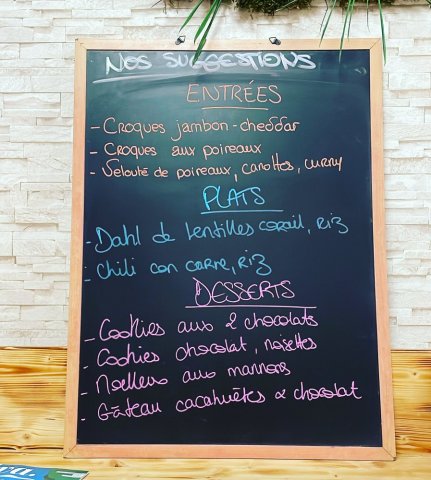 NOS SUGGESTIONS
ENTRÉES
- Croques jambon-cheddar
- Croques aux poireaux
- Velouté de poireaux, carottes, curry
PLATS
- Dahl de lentilles corail, riz
- Chili con carne, riz
DESSERTS
- Cookies aux 2 chocolats
- Cookies chocolat, noisettes
- Moelleux aux marrons
- Gâteau cacahuètes & chocolat